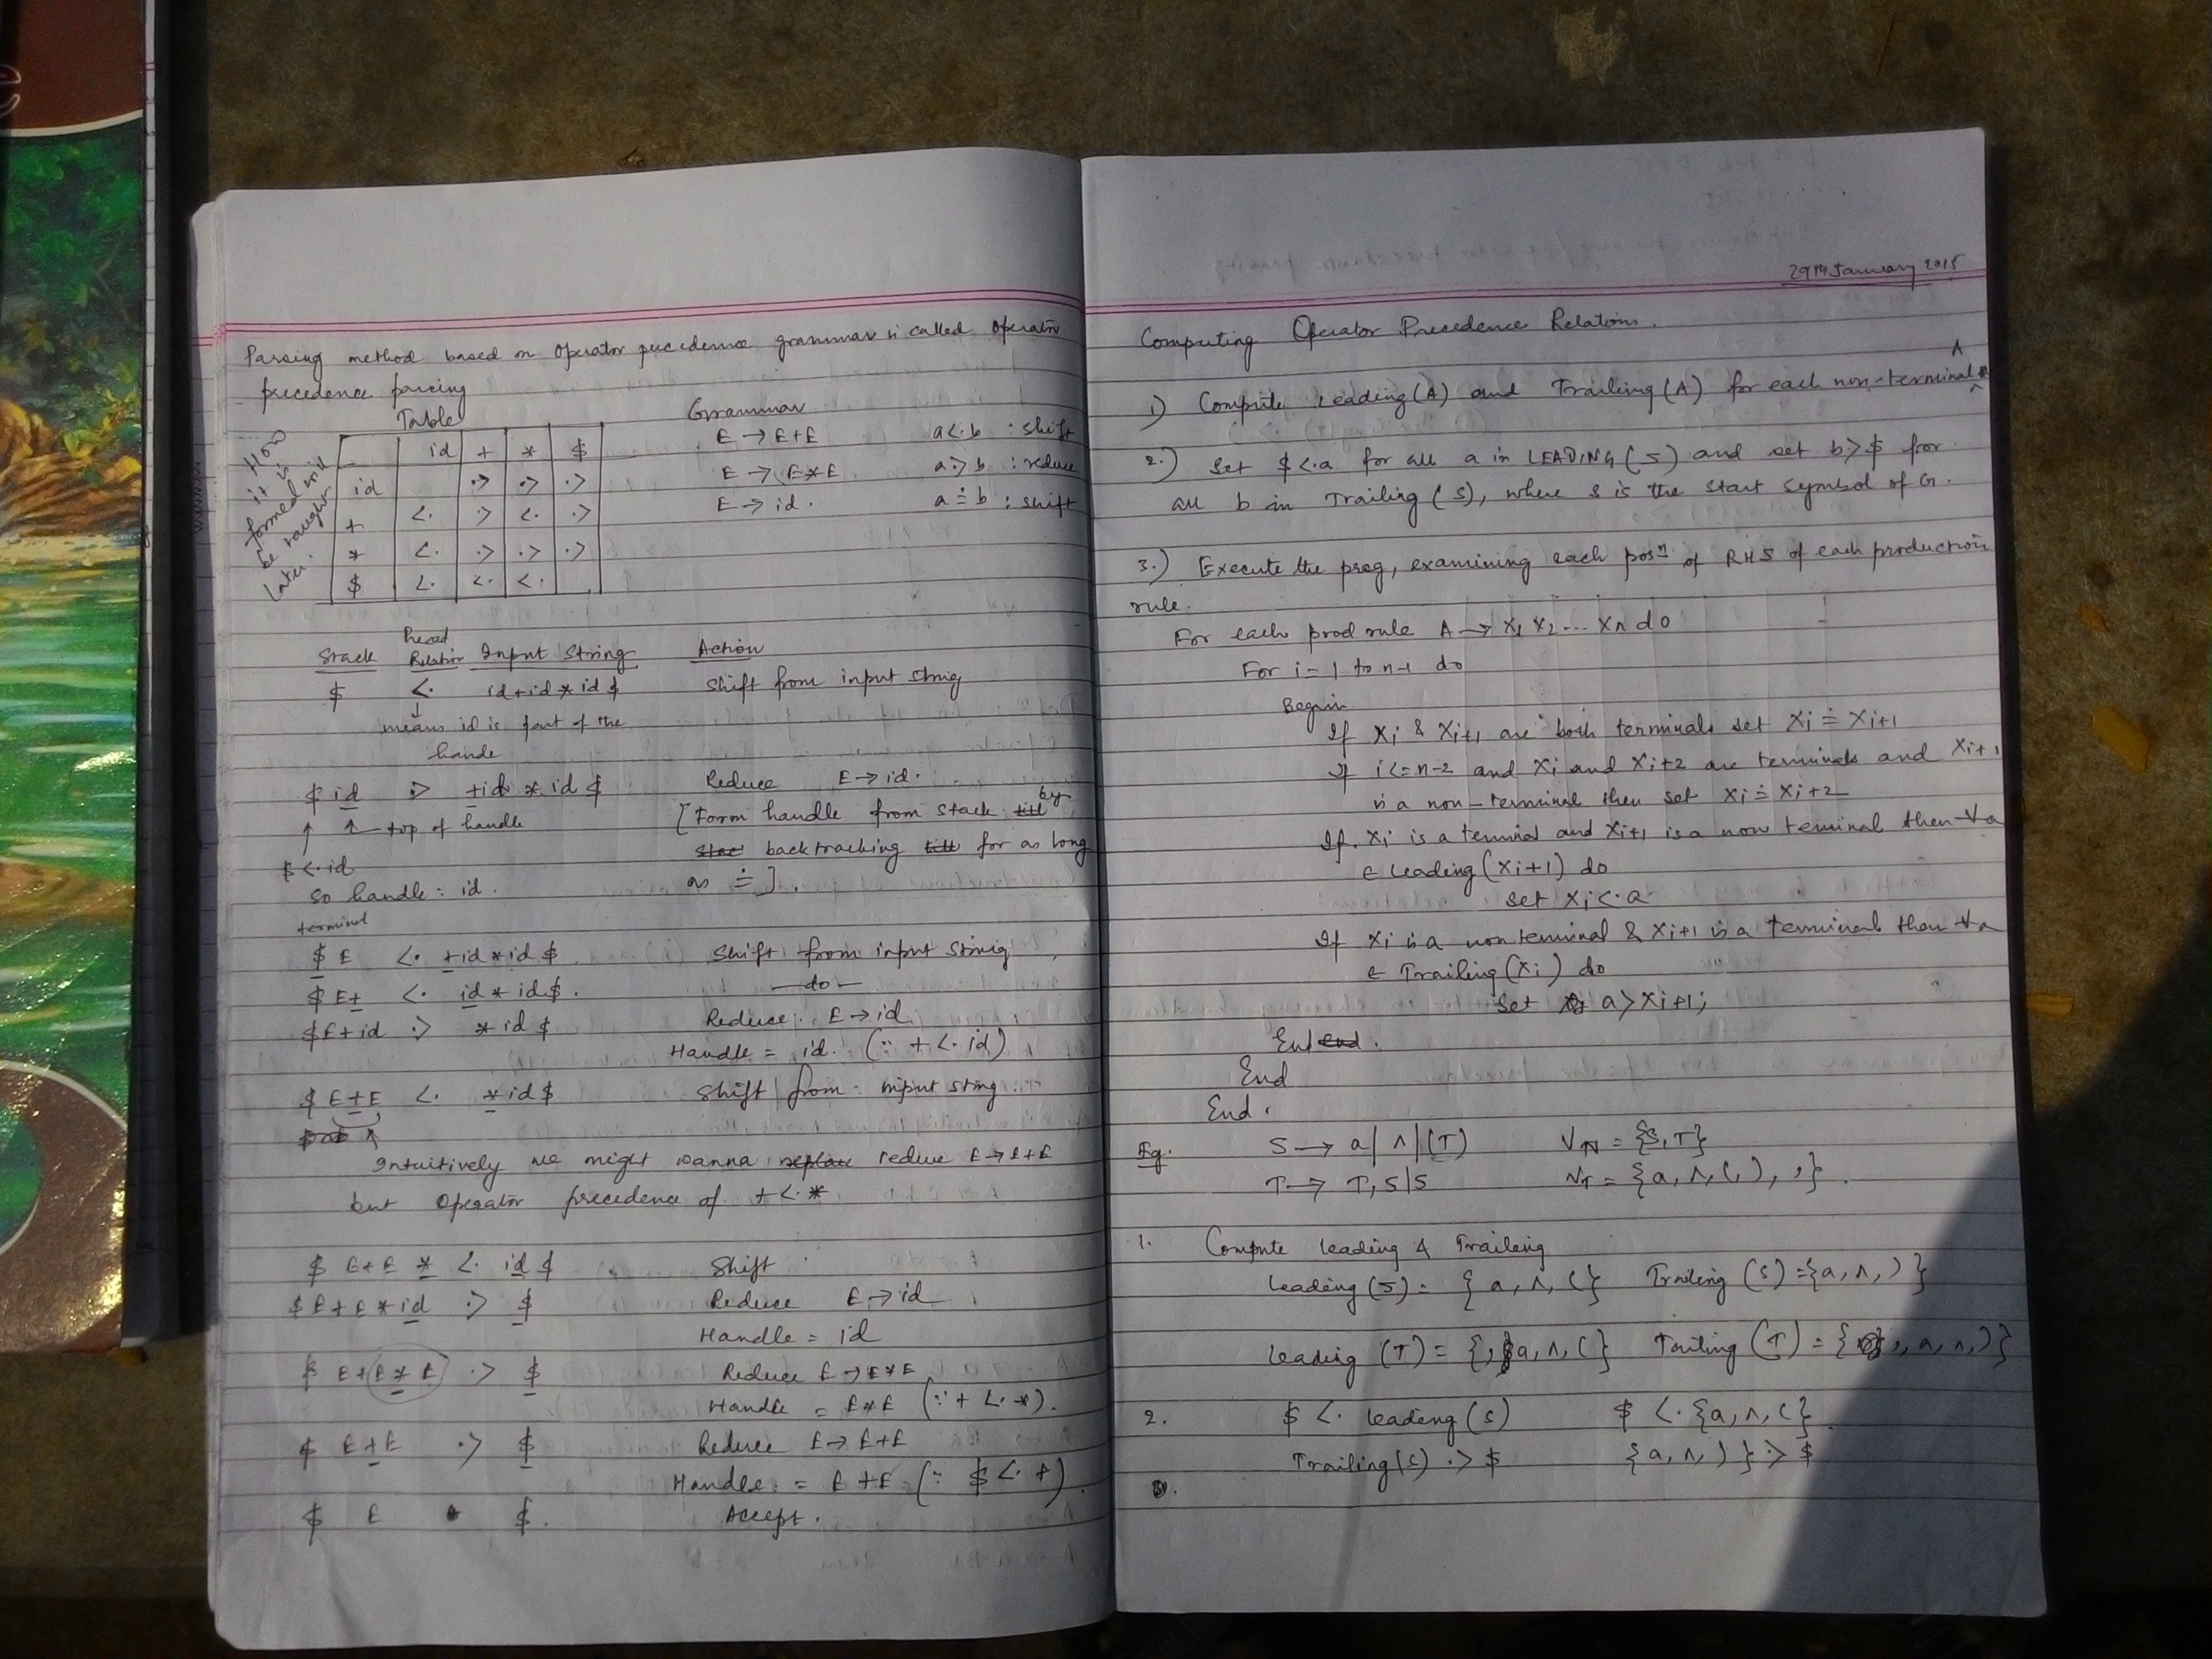 Parsing method based on Operator precedence grammar is called Operator
precedence parsing
Table
Grammar
How it is formed will be taught later.
id + * $
id ·> ·> ·>
+ <· ·> <· ·>
* <· ·> ·> ·>
$ <· <· <·
E → E+E a <· b : shift
E → E*E a ·> b : reduce
E → id. a ≐ b : shift
Stack Preced Relation Input String Action
$ <· id+id*id$ Shift from input string
means id is part of the
hande
$ id ·> +id*id$ Reduce E → id.
↑ ↑ top of handle [Form handle from stack by
$ <· id backtracking for as long
so handle: id. as ≐].
terminal
$ E <· +id*id$ Shift from input string
$ E+ <· id*id$. —do—
$E+id ·> *id$ Reduce. E → id
Handle = id. (∵ + <· id)
$ E+E <· *id$ Shift from input string.
Intuitively we might wanna reduce E→E+E
but Operator precedence of + <· *
$ E+E * <· id $ Shift
$E+E*id ·> $ Reduce E → id
Handle = id
$ E+E*E ·> $ Reduce E→E*E
Handle = E*E (∵ + <· *).
$ E+E ·> $ Reduce E→E+E
Handle = E+E (∵ $ <· +).
$ E $. Accept.
29th January 2015
Computing Operator Precedence Relations.
1) Compute Leading(A) and Trailing(A) for each non-terminal A
2.) Set $ <· a for all a in LEADING(S) and set b > $ for
all b in Trailing(S), where S is the start symbol of G.
3.) Execute the prog, examining each posⁿ of RHS of each production
rule.
For each prod rule A → X1 X2 ... Xn do
For i = 1 to n-1 do
Begin
If Xi & Xi+1 are both terminals set Xi ≐ Xi+1
If i <= n-2 and Xi and Xi+2 are terminals and Xi+1
is a non-terminal then set Xi ≐ Xi+2
If Xi is a terminal and Xi+1 is a non terminal then ∀a
∈ Leading(Xi+1) do
set Xi <· a
If Xi is a non terminal & Xi+1 is a terminal then ∀a
∈ Trailing(Xi) do
set a > Xi+1;
End.
End
End.
Eg. S → a | ∧ | (T) VN = {S, T}
T → T, S | S VT = {a, ∧, (, ), ,}.
1. Compute leading & Trailing
Leading(S) = {a, ∧, (} Trailing(S) = {a, ∧, )}
Leading(T) = {, a, ∧, (} Trailing(T) = {, , a, ∧, )}
2. $ <· Leading(S) $ <· {a, ∧, (}.
Trailing(S) ·> $ {a, ∧, )} ·> $